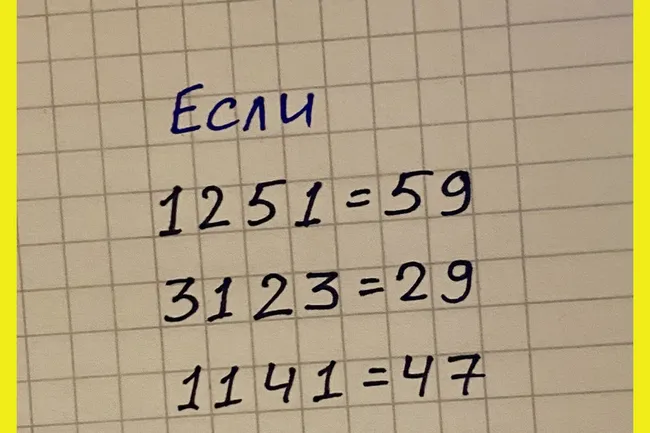 Если
1251=59
3123=29
1141=47